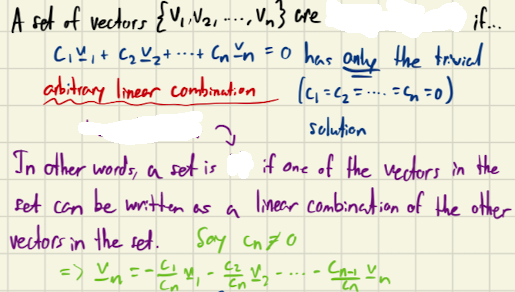 A set of vectors {V₁, V₂, ..., Vₙ} are if...
C₁V₁ + C₂V₂ + ... + CₙVₙ = 0 has only the trivial
arbitrary linear combination (C₁ = C₂ = .... = Cₙ = 0)
solution
In other words, a set is if one of the vectors in the
set can be written as a linear combination of the other
vectors in the set. Say Cₙ ≠ 0
=> Vₙ = - C₁/Cₙ V₁ - C₂/Cₙ V₂ - .... - Cₙ₋₁/Cₙ Vₙ